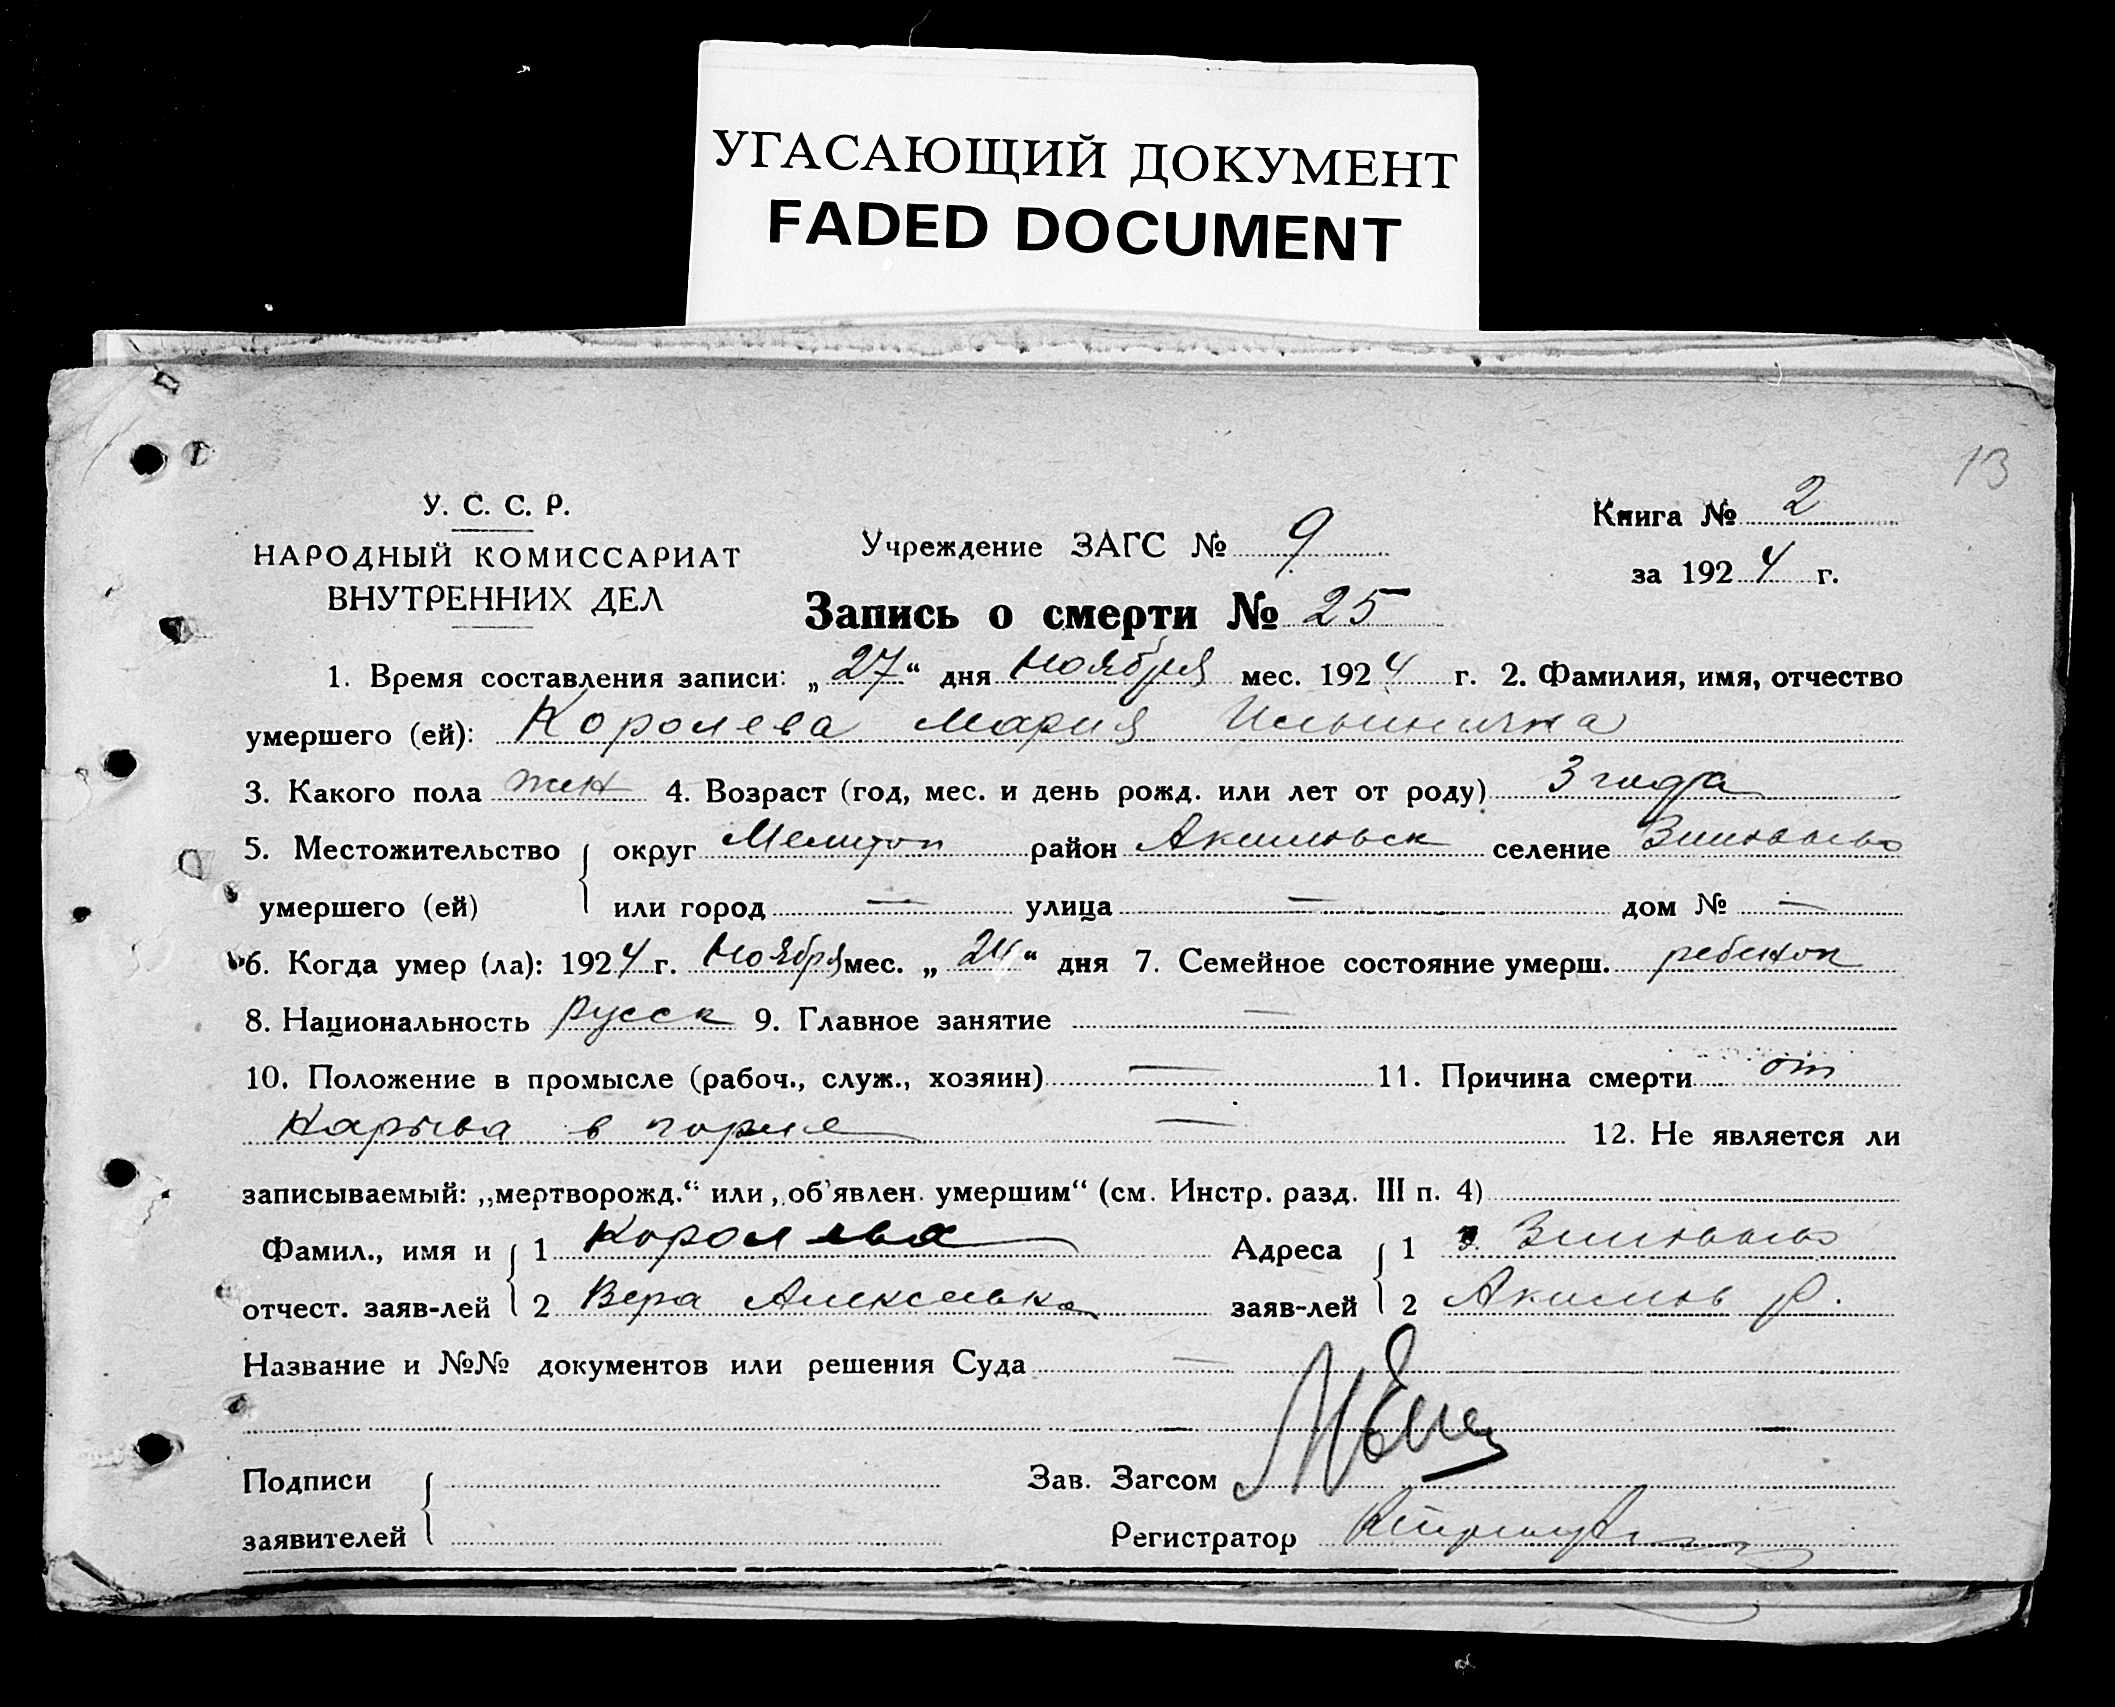 УГАСАЮЩИЙ ДОКУМЕНТ
FADED DOCUMENT
13
У. С. С. Р.
НАРОДНЫЙ КОМИССАРИАТ
ВНУТРЕННИХ ДЕЛ
Учреждение ЗАГС № 9
Книга № 2
за 1924 г.
Запись о смерти № 25
1. Время составления записи: „27“ дня Ноября мес. 1924 г. 2. Фамилия, имя, отчество
умершего (ей): Королева Мария Ильинична
3. Какого пола жен 4. Возраст (год, мес. и день рожд. или лет от роду) 3 года
5. Местожительство округ Мелитоп район Акимовск селение
умершего (ей) или город — улица — дом № —
6. Когда умер (ла): 1924 г. Ноября мес. „24“ дня 7. Семейное состояние умерш. ребенок
8. Национальность Русск 9. Главное занятие —
10. Положение в промысле (рабоч., служ., хозяин) — 11. Причина смерти от
Нарыва в горле — 12. Не является ли
записываемый: „мертворожд.“ или „об'явлен. умершим“ (см. Инстр. разд. III п. 4)
Фамил., имя и 1 Королева Адреса 1
отчест. заяв-лей 2 Вера заяв-лей 2 Акимов р.
Название и №№ документов или решения Суда —
— —
Подписи Зав. Загсом
заявителей Регистратор